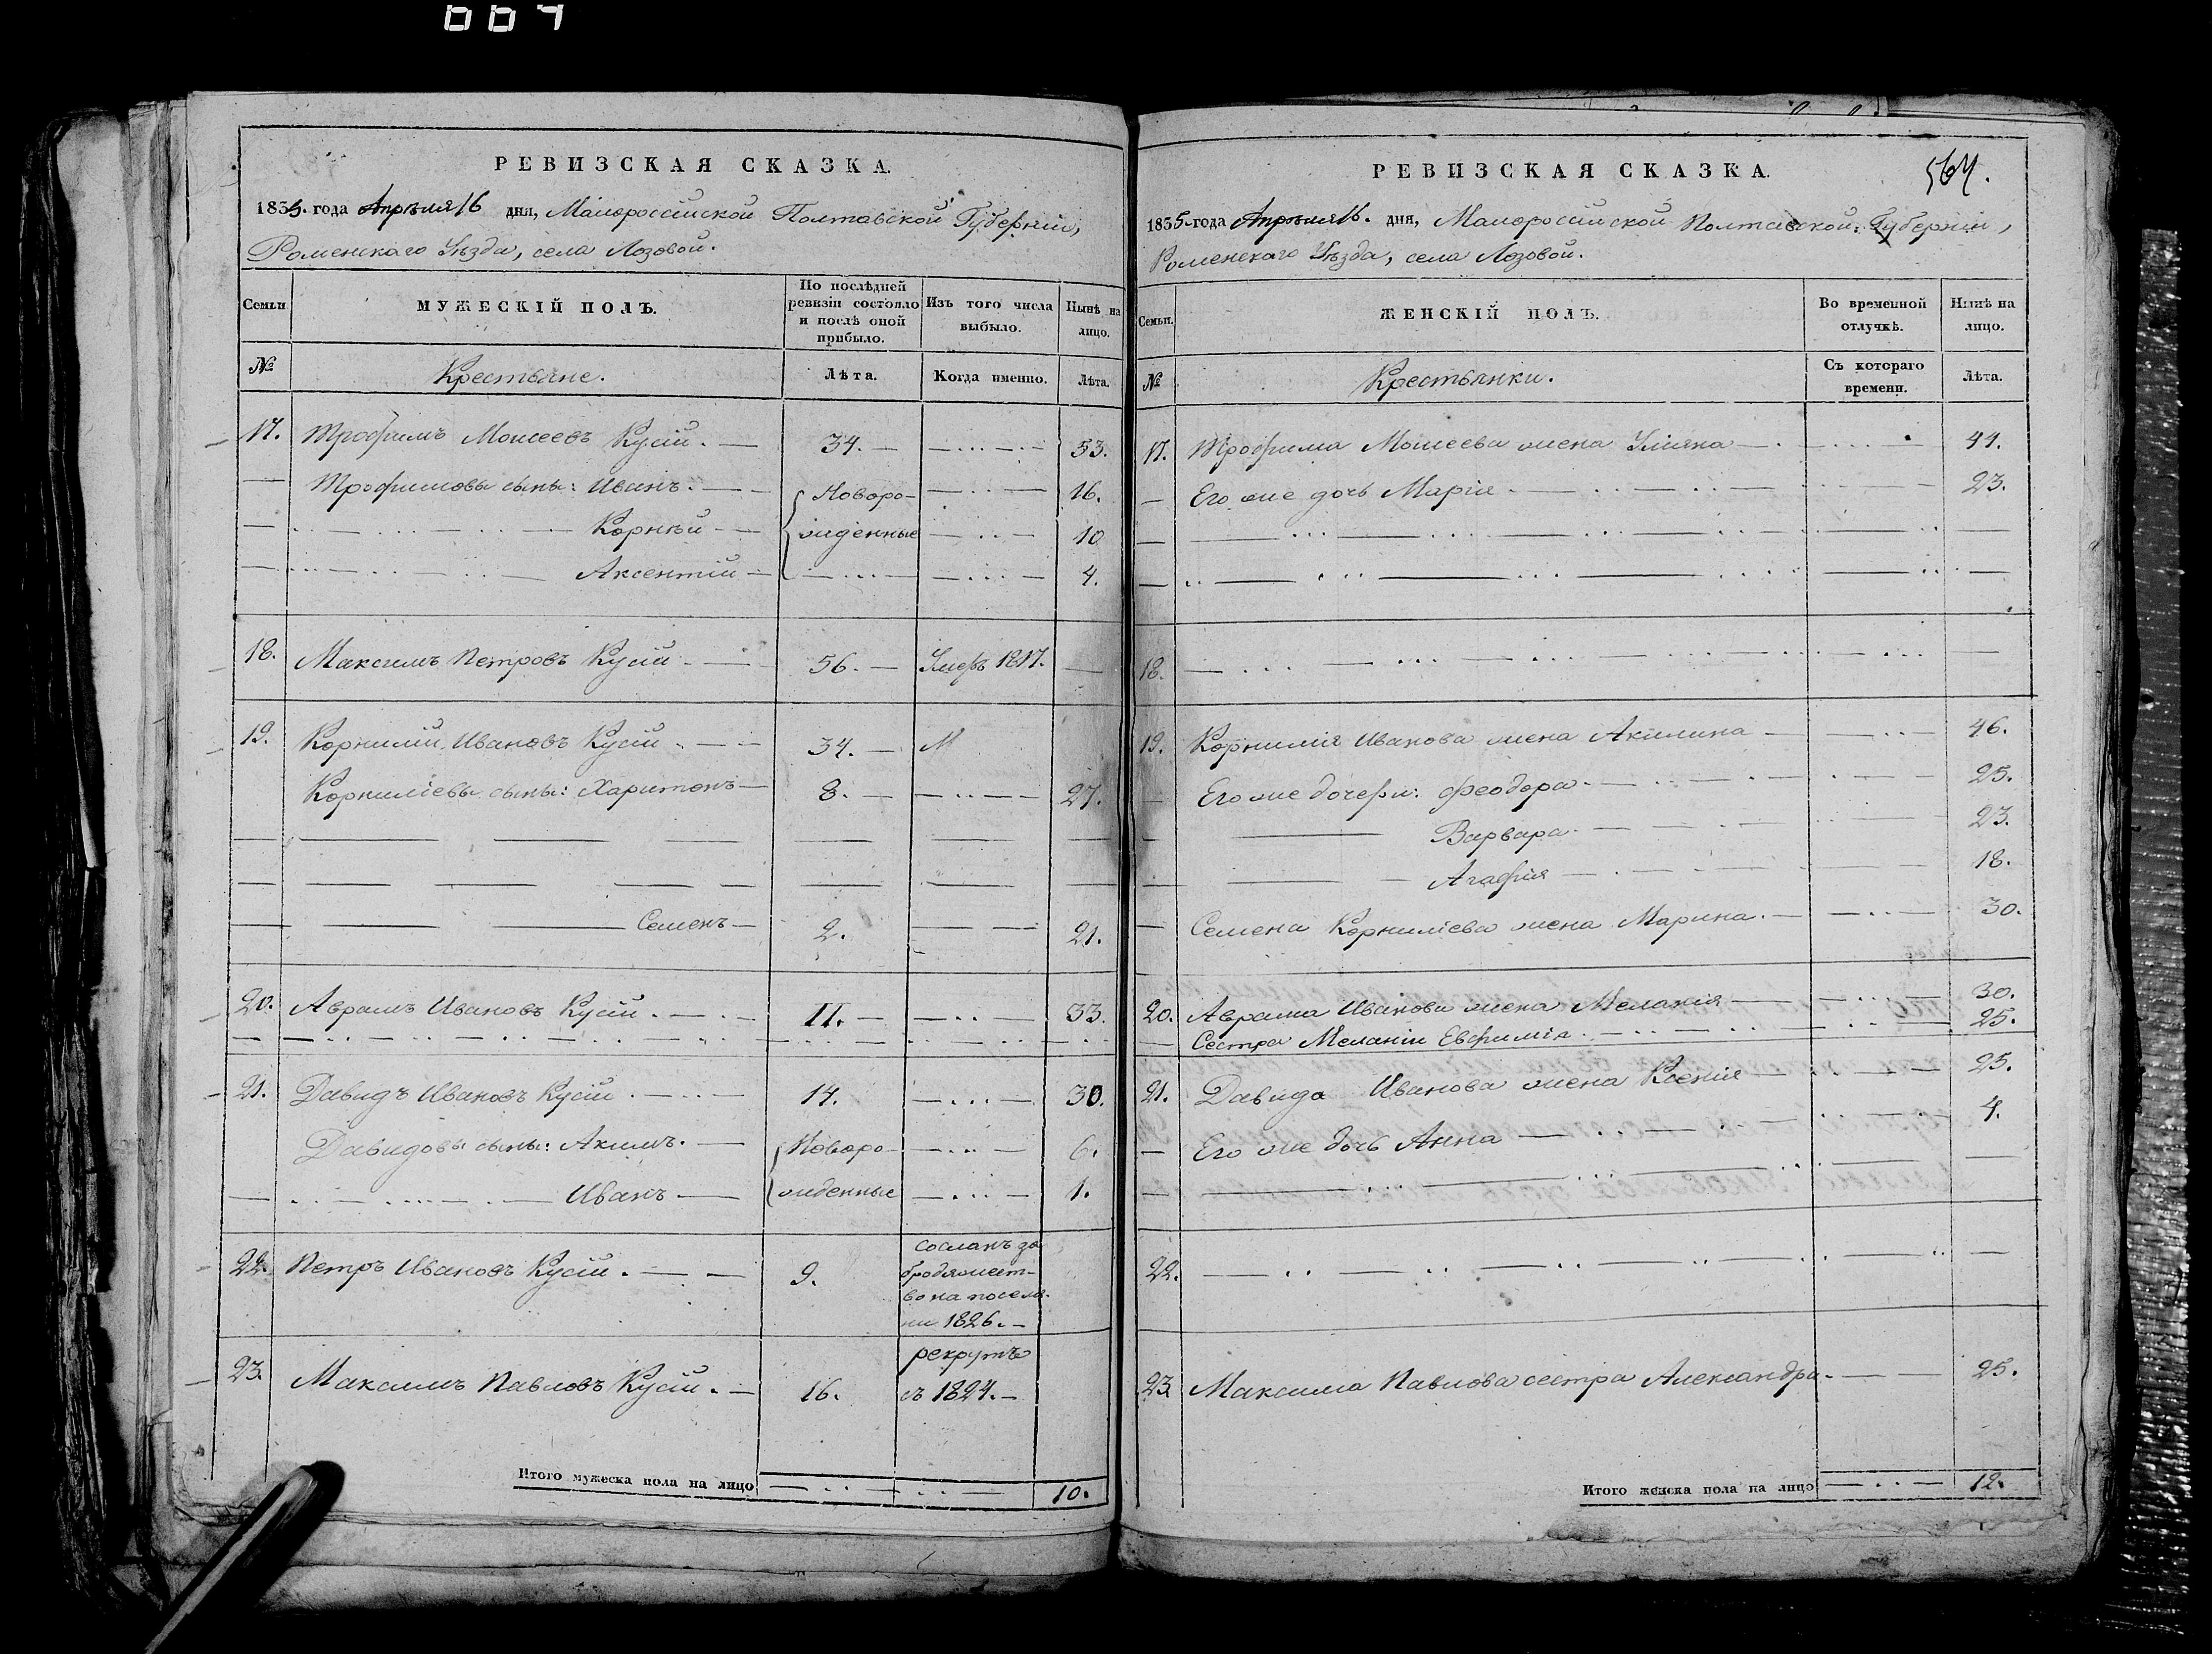 РЕВИЗСКАЯ СКАЗКА.
1835. года Апрѣля 16 дня, Малороссійской Полтавской Губерніи,
Роменскаго Уѣзда, села Лозовой.
Семьи
МУЖЕСКІЙ ПОЛЪ.
По послѣдней
ревизіи состояло
и послѣ оной
прибыло.
Изъ того числа
выбыло.
Нынѣ на
лицо.
№
Крестьяне.
Лѣта.
Когда именно.
Лѣта.
17. Трофимъ Моисеевъ Кусій. 34. 53.
Трофимовы сыны: Иванъ. Новоро- 16.
Корнѣй жденные 10
Аксентій 4.
18. Максимъ Петровъ Кусій 56. Умеръ 1817.
19. Корнилій Ивановъ Кусій. 34. М
Корниліевы сыны: Харитонъ 8. 27.
Семенъ 2. 21.
20. Аврамъ Ивановъ Кусій. 11. 33.
21. Давидъ Ивановъ Кусій. 14. 30.
Давидовы сыны: Акимъ. Новоро- 6.
Иванъ жденные 1.
22. Петръ Ивановъ Кусій. 9. сосланъ за
бродяжест-
во на посел.
1826.
23. Максимъ Павловъ Кусій. 16. рекрутъ
съ 1824.
Итого мужеска пола на лицо 10.
564.
РЕВИЗСКАЯ СКАЗКА.
1835. года Апрѣля 16. дня, Малороссійской Полтавской Губерніи,
Роменскаго Уѣзда, села Лозовой.
Семьи.
ЖЕНСКІЙ ПОЛЪ.
Во временной
отлучкѣ.
Нынѣ на
лицо.
№
Крестьянки.
Съ котораго
времени.
Лѣта.
17. Трофима Моисеева жена Уліяна 44.
Его же дочь Марія 23.
18.
19. Корнилія Иванова жена Акилина 46.
Его же дочери: Феодора 25.
Варвара 23.
Агафія 18.
Семена Корниліева жена Марина. 30.
20. Аврама Иванова жена Меланія 30.
Сестра Меланіи Евфимія 25.
21. Давида Иванова жена Ксенія 25.
Его же дочь Анна 4.
22.
23. Максима Павлова сестра Александра. 25.
Итого женска пола на лицо 12.